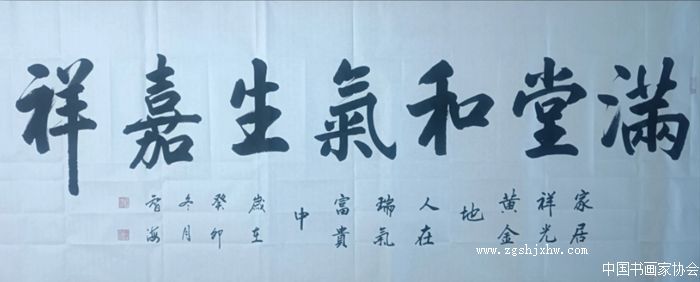 滿堂和氣生嘉祥
家居
祥光
黄金
地
人在
瑞氣
富貴
中
歲在
癸卯
冬月
智海
www.zgshjxhw.com
中国书画家协会